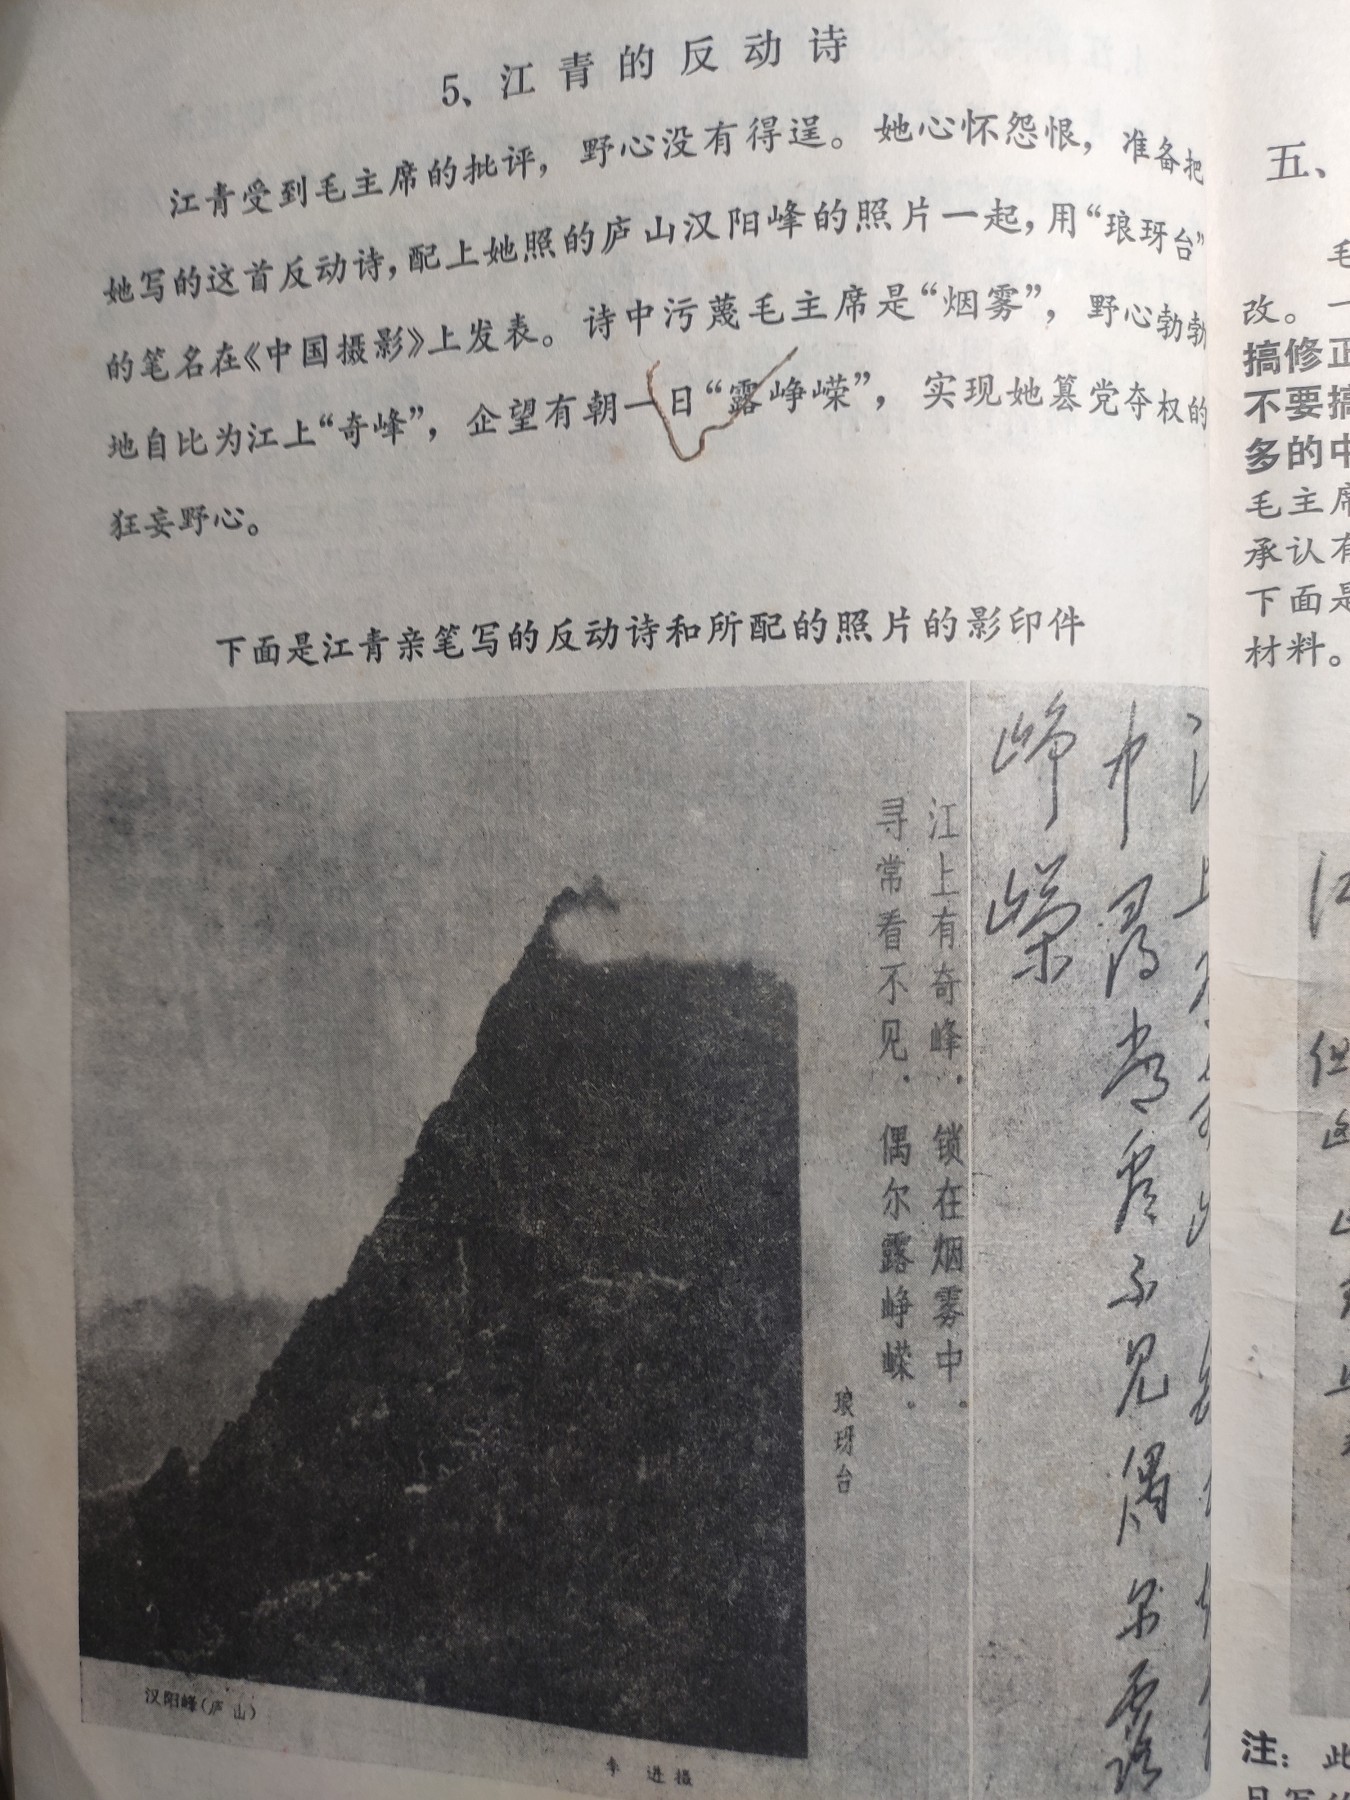 5、江青的反动诗
江青受到毛主席的批评，野心没有得逞。她心怀怨恨，准备把
她写的这首反动诗，配上她照的庐山汉阳峰的照片一起，用“琅玡台”
的笔名在《中国摄影》上发表。诗中污蔑毛主席是“烟雾”，野心勃勃
地自比为江上“奇峰”，企望有朝一日“露峥嵘”，实现她篡党夺权的
狂妄野心。
下面是江青亲笔写的反动诗和所配的照片的影印件
江上有奇峰，锁在烟雾中。
寻常看不见，偶尔露峥嵘。
琅玡台
汉阳峰（庐山）
李进摄
中寻常看不见偶尔露
峥嵘
五、
毛
改。一
搞修正
不要搞
多的中
毛主席
承认有
下面是
材料。
江
但
注：此